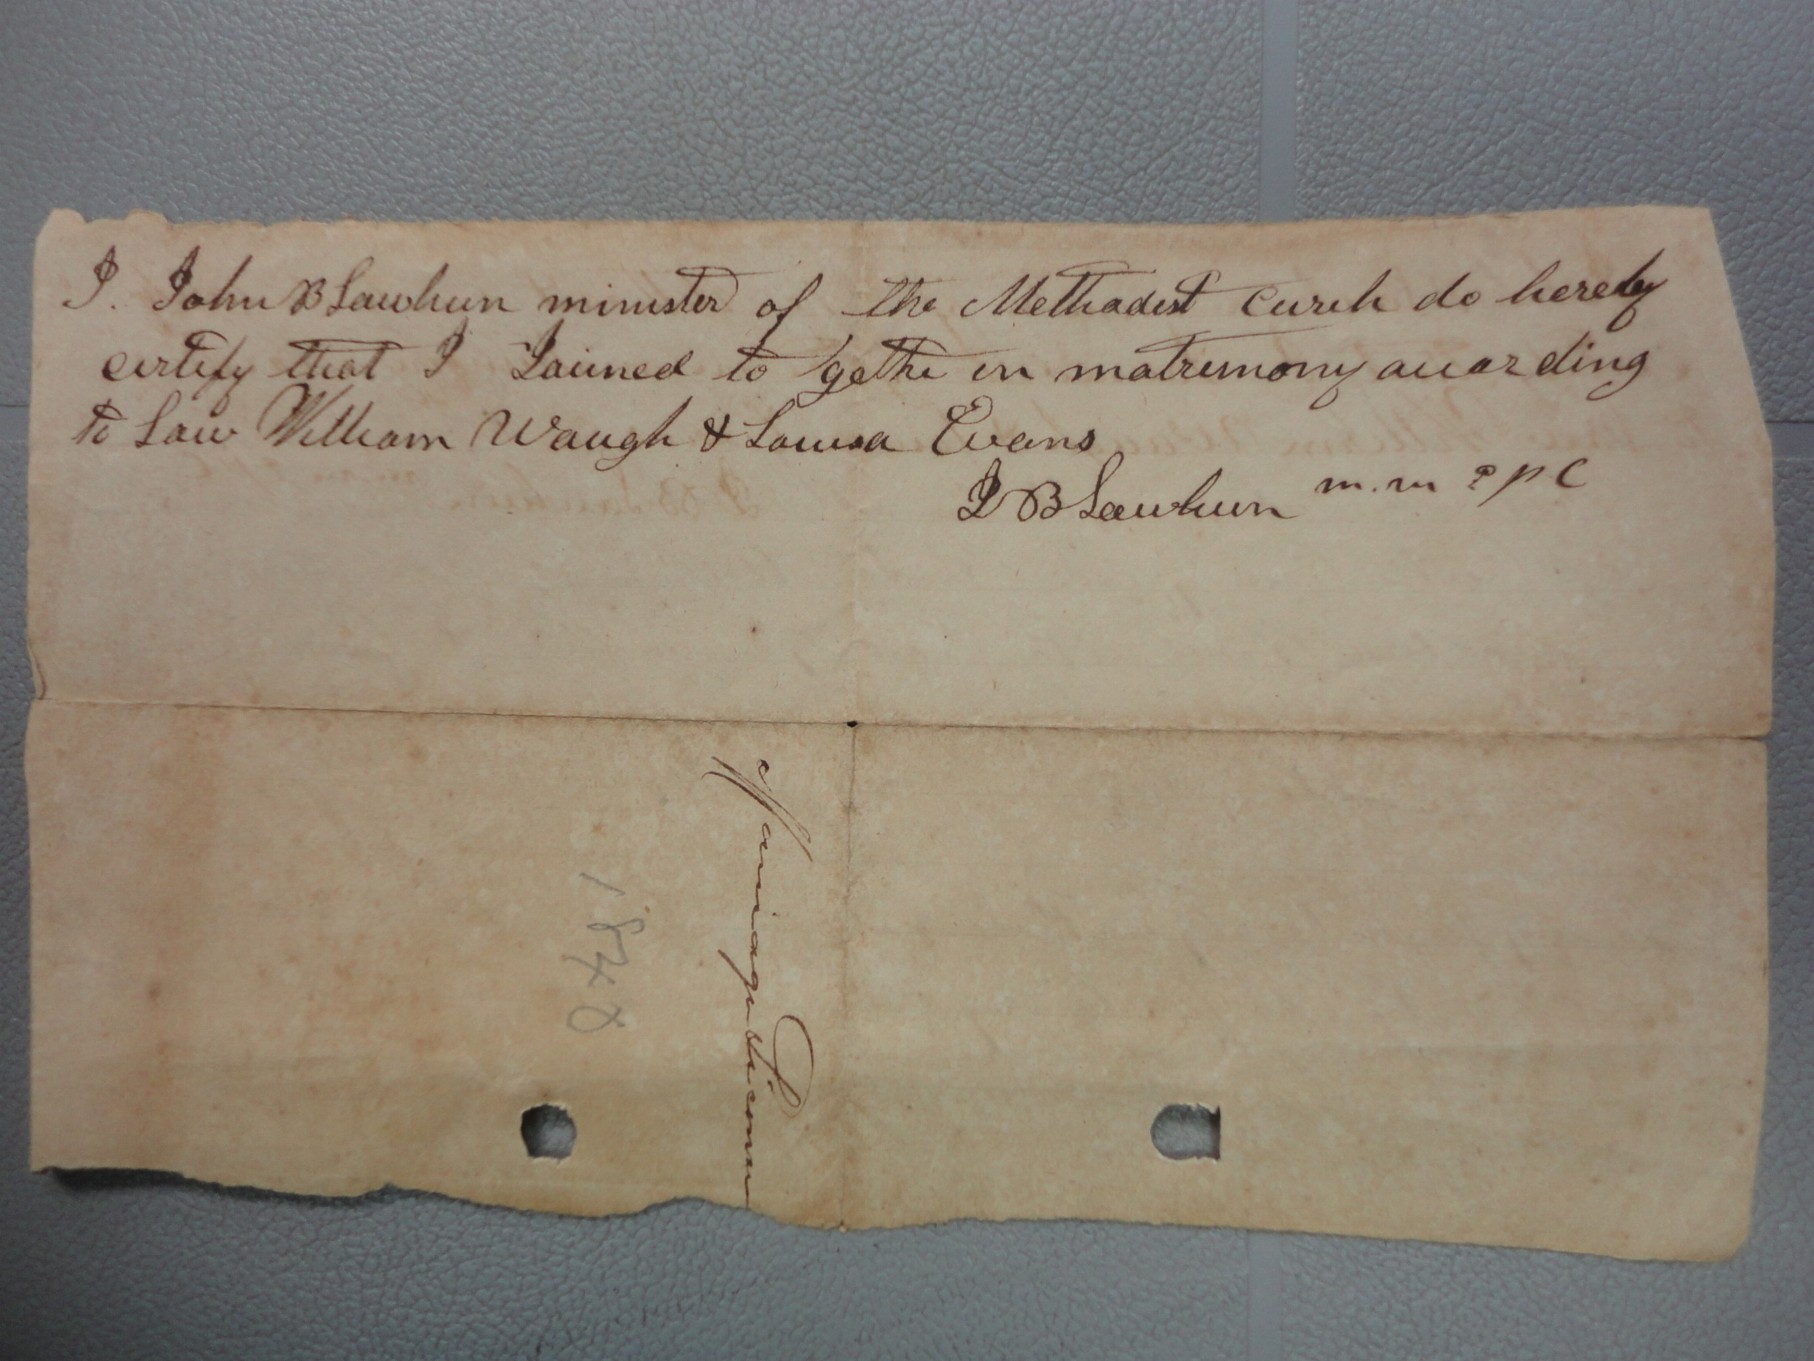 I. John B Lawhun minister of the Methadest Curch do hereby
certify that I Joined to gethe in matrimony according
to Law William Waugh & Louisa Evans
J B Lawhun m.m P P C
Marriage License
1840